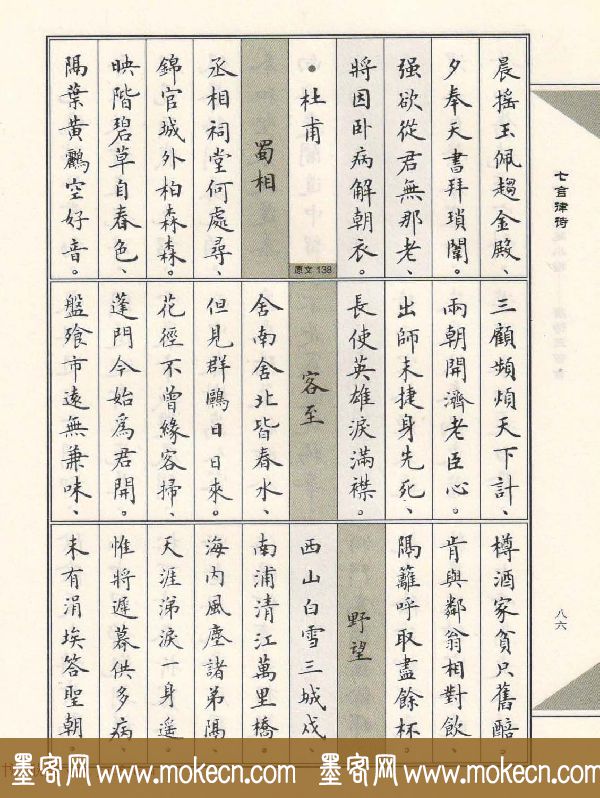 七言律诗
晨搖玉佩趨金殿、
夕奉天書拜瑣闈。
强欲從君無那老、
將因卧病解朝衣。
•杜甫
原文 138
蜀相
丞相祠堂何處尋、
錦官城外柏森森。
映階碧草自春色、
隔葉黄鸝空好音。
三顧頻煩天下計、
兩朝開濟老臣心。
出師未捷身先死、
長使英雄淚滿襟。
客至
舍南舍北皆春水、
但見群鷗日日來。
花徑不曾緣客掃、
蓬門今始爲君開。
盤飱市遠無兼味、
樽酒家貧只舊醅。
肯與鄰翁相對飲、
隔籬呼取盡餘杯。
野望
西山白雪三城戍、
南浦清江萬里橋。
海内風塵諸弟隔、
天涯涕淚一身遥。
惟將遲暮供多病、
未有涓埃答聖朝。
八六
墨客网 www.mokecn.com 墨客网 www.mokecn.com